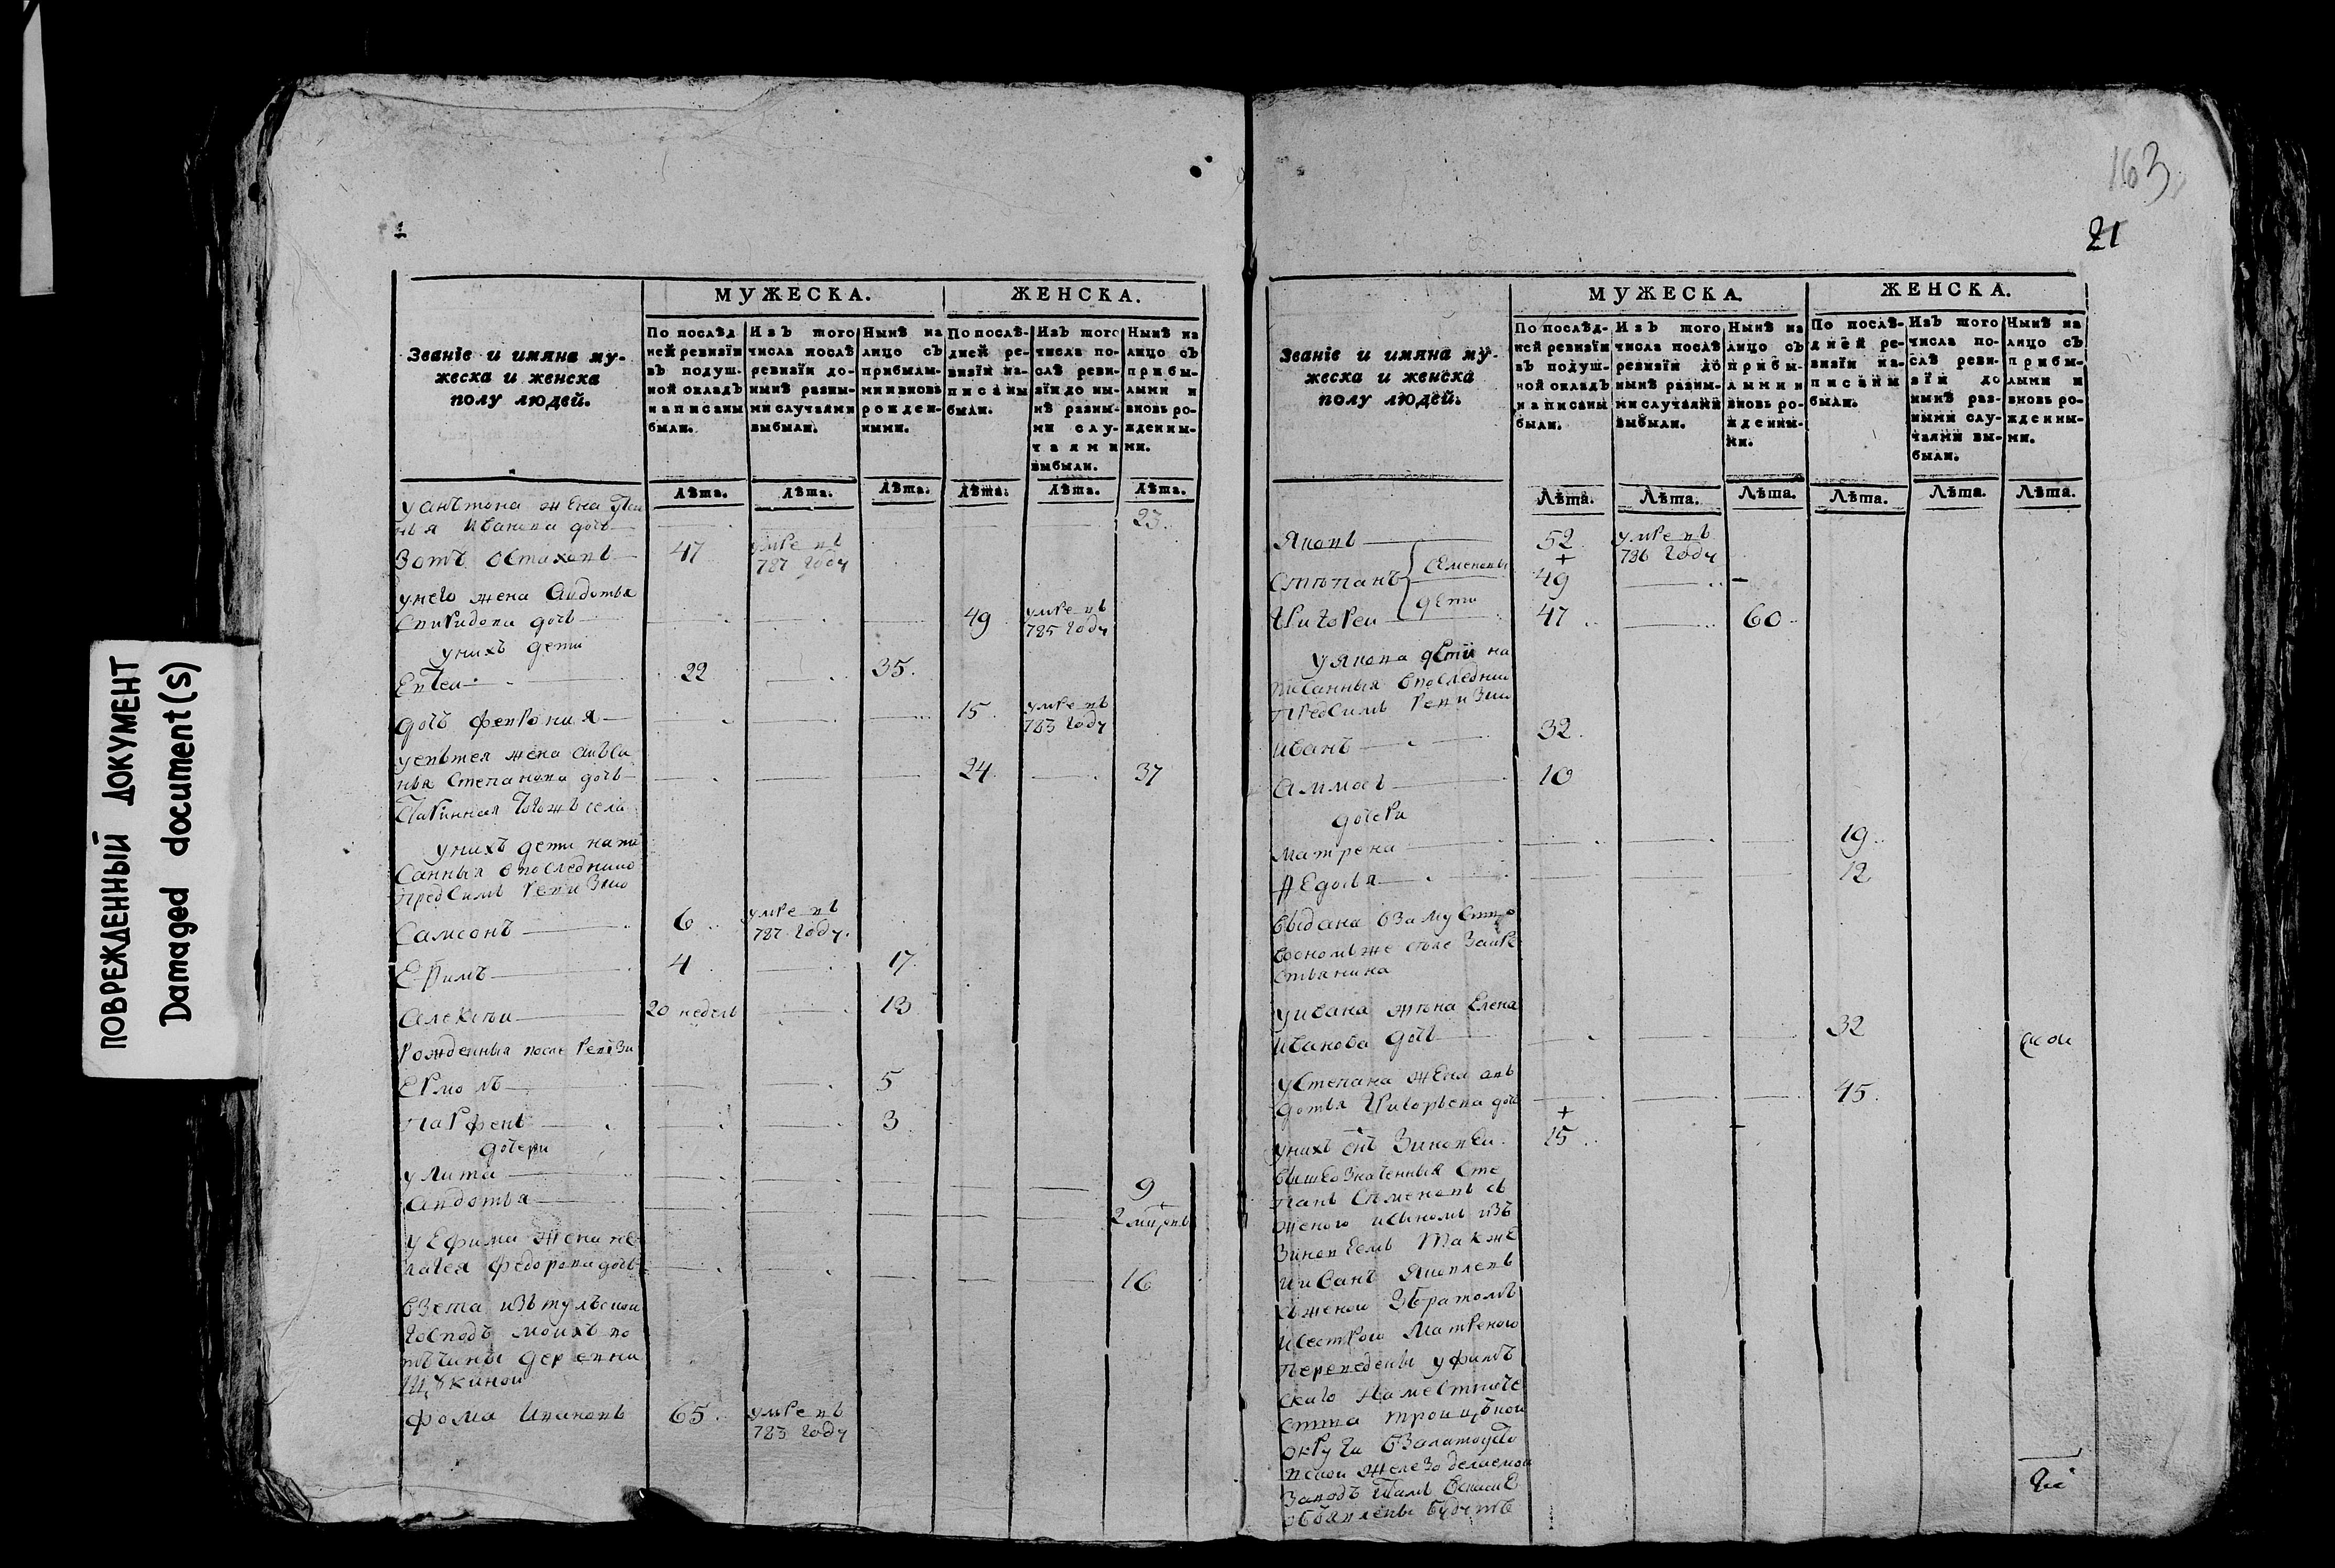 163
21
ПОВРЕЖДЕННЫЙ ДОКУМЕНТ
Damaged document(s)
МУЖЕСКА. ЖЕНСКА.
Званїе и имяна му-
жеска и женска
полу людей.
По послѣд
ней ревизїи
въ подуш-
ной окладъ
написаны
были.
Изъ того
числа послѣ
ревизїи до-
нынѣ разны-
ми случаями
выбыли.
Нынѣ на
лицо съ
прибылы-
ми и вновь
рожден-
ными.
По послѣ-
дней ре-
визїи на-
писаны
были.
Изъ того
числа по-
слѣ реви-
зїи до ны-
нѣ разны-
ми слу-
чаями
выбыли.
Нынѣ на
лицо съ
прибы-
лыми и
вновь ро-
жденны-
ми.
Лѣта. Лѣта. Лѣта. Лѣта. Лѣта. Лѣта.
уанътона жена
нья Иванова дочь 23
Зотъ Остаховъ 47 умре въ
787 году
унего жена Авдотья
Спиридона дочь 49 умре въ
785 году
унихъ дети
Евтеи 22 35
дочь Феврония 15 умре въ
783 году
уевътея жена
нья Степанова дочь 24 37
тогожъ села
унихъ дети напи
санныя впоследнию
предсимъ ревизию
Самсонъ 6 умре въ
787 году.
Ефимъ 4 17
Алексеи 20 недель 13
Рожденныя после ревизи
Ермолъ 5
Парфенъ 3
дочери
улита 9
Авдотья 2
уЕфима жена пе
лагея Федорова дочь 16
Взета изътулъскои
господъ моихъ во
тъчины деревни
Щ кинои
Фома Ивановъ 65 умре въ
783 году
МУЖЕСКА. ЖЕНСКА.
Званїе и имяна му-
жеска и женска
полу людей.
По послѣд-
ней ревизїи
въ подуш-
ной окладъ
написаны
были.
Изъ того
числа послѣ
ревизїи до
нынѣ разны-
ми случаями
выбыли.
Нынѣ на
лицо съ
прибы-
лыми и
вновь ро-
жденны-
ми.
По послѣ-
дней ре-
визїи на-
писаны
были.
Изъ того
числа по-
слѣ реви-
зїи до
нынѣ раз-
ными слу-
чаями вы-
были.
Нынѣ на
лицо съ
прибы-
лыми и
вновь ро-
жденны-
ми.
Лѣта. Лѣта. Лѣта. Лѣта. Лѣта. Лѣта.
Яковъ 52 умре въ
786 году
Степанъ Семеновы 49
Григореи дети 47 60
уЯкова дети на
писанныя впоследнии
предсимъ ревизии
Иванъ 32
Аммосъ 10
дочери
матрена 19
Федосья 12
выдана взамуство
восномъже селе закре
стьянина
уивана жена Елена
Иванова дочь 32
уСтепана жена ав
дотья Григорьева дочь 45
унихъ сНъ Зиновеи 15
вышеозначенныя Сте
панъ Семеновъ съ
женою исыномъ изъ
Зиновеемъ также
ииванъ Яковлевъ
съженои Збратомъ
исестрою Матреною
Переведены уфимъ
скаго наместниче
ства троицкои
округи Взлатоусто
вскои железоделаемои
заводъ тамъ вписке
обьявлены будутъ